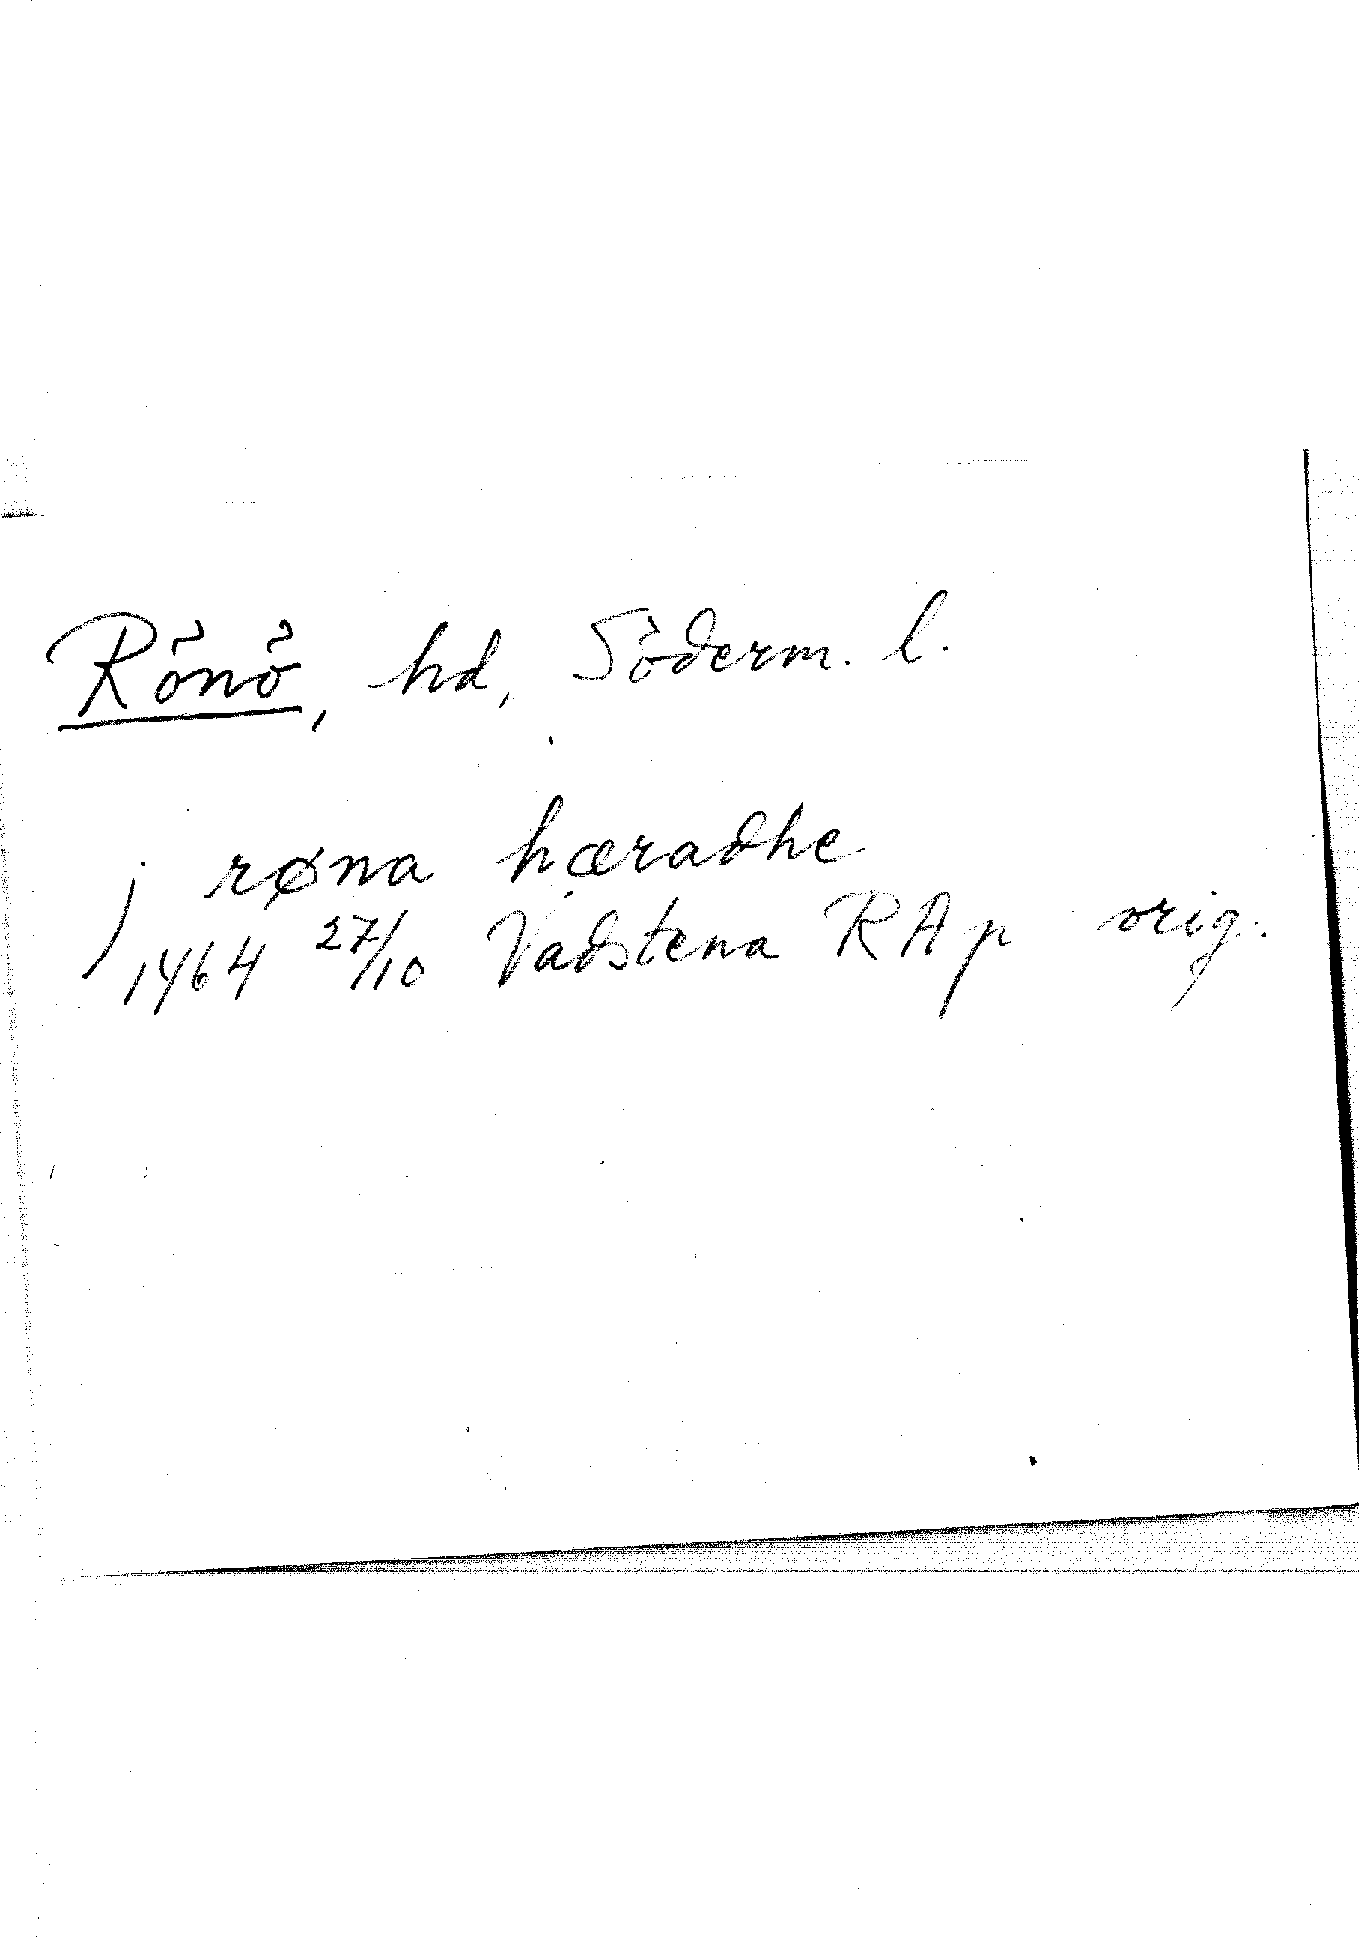 Rönö, hd, Söderm. l.
j røna hæradhe
1464 27/10 Vadstena RAp orig.